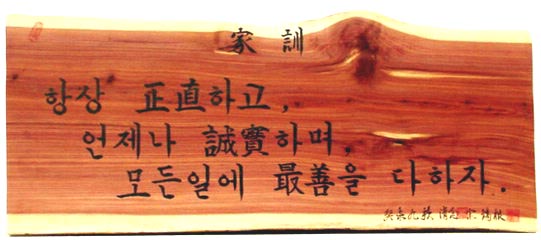 家訓
항상 正直하고,
언제나 誠實하며,
모든일에 最善을 다하자.